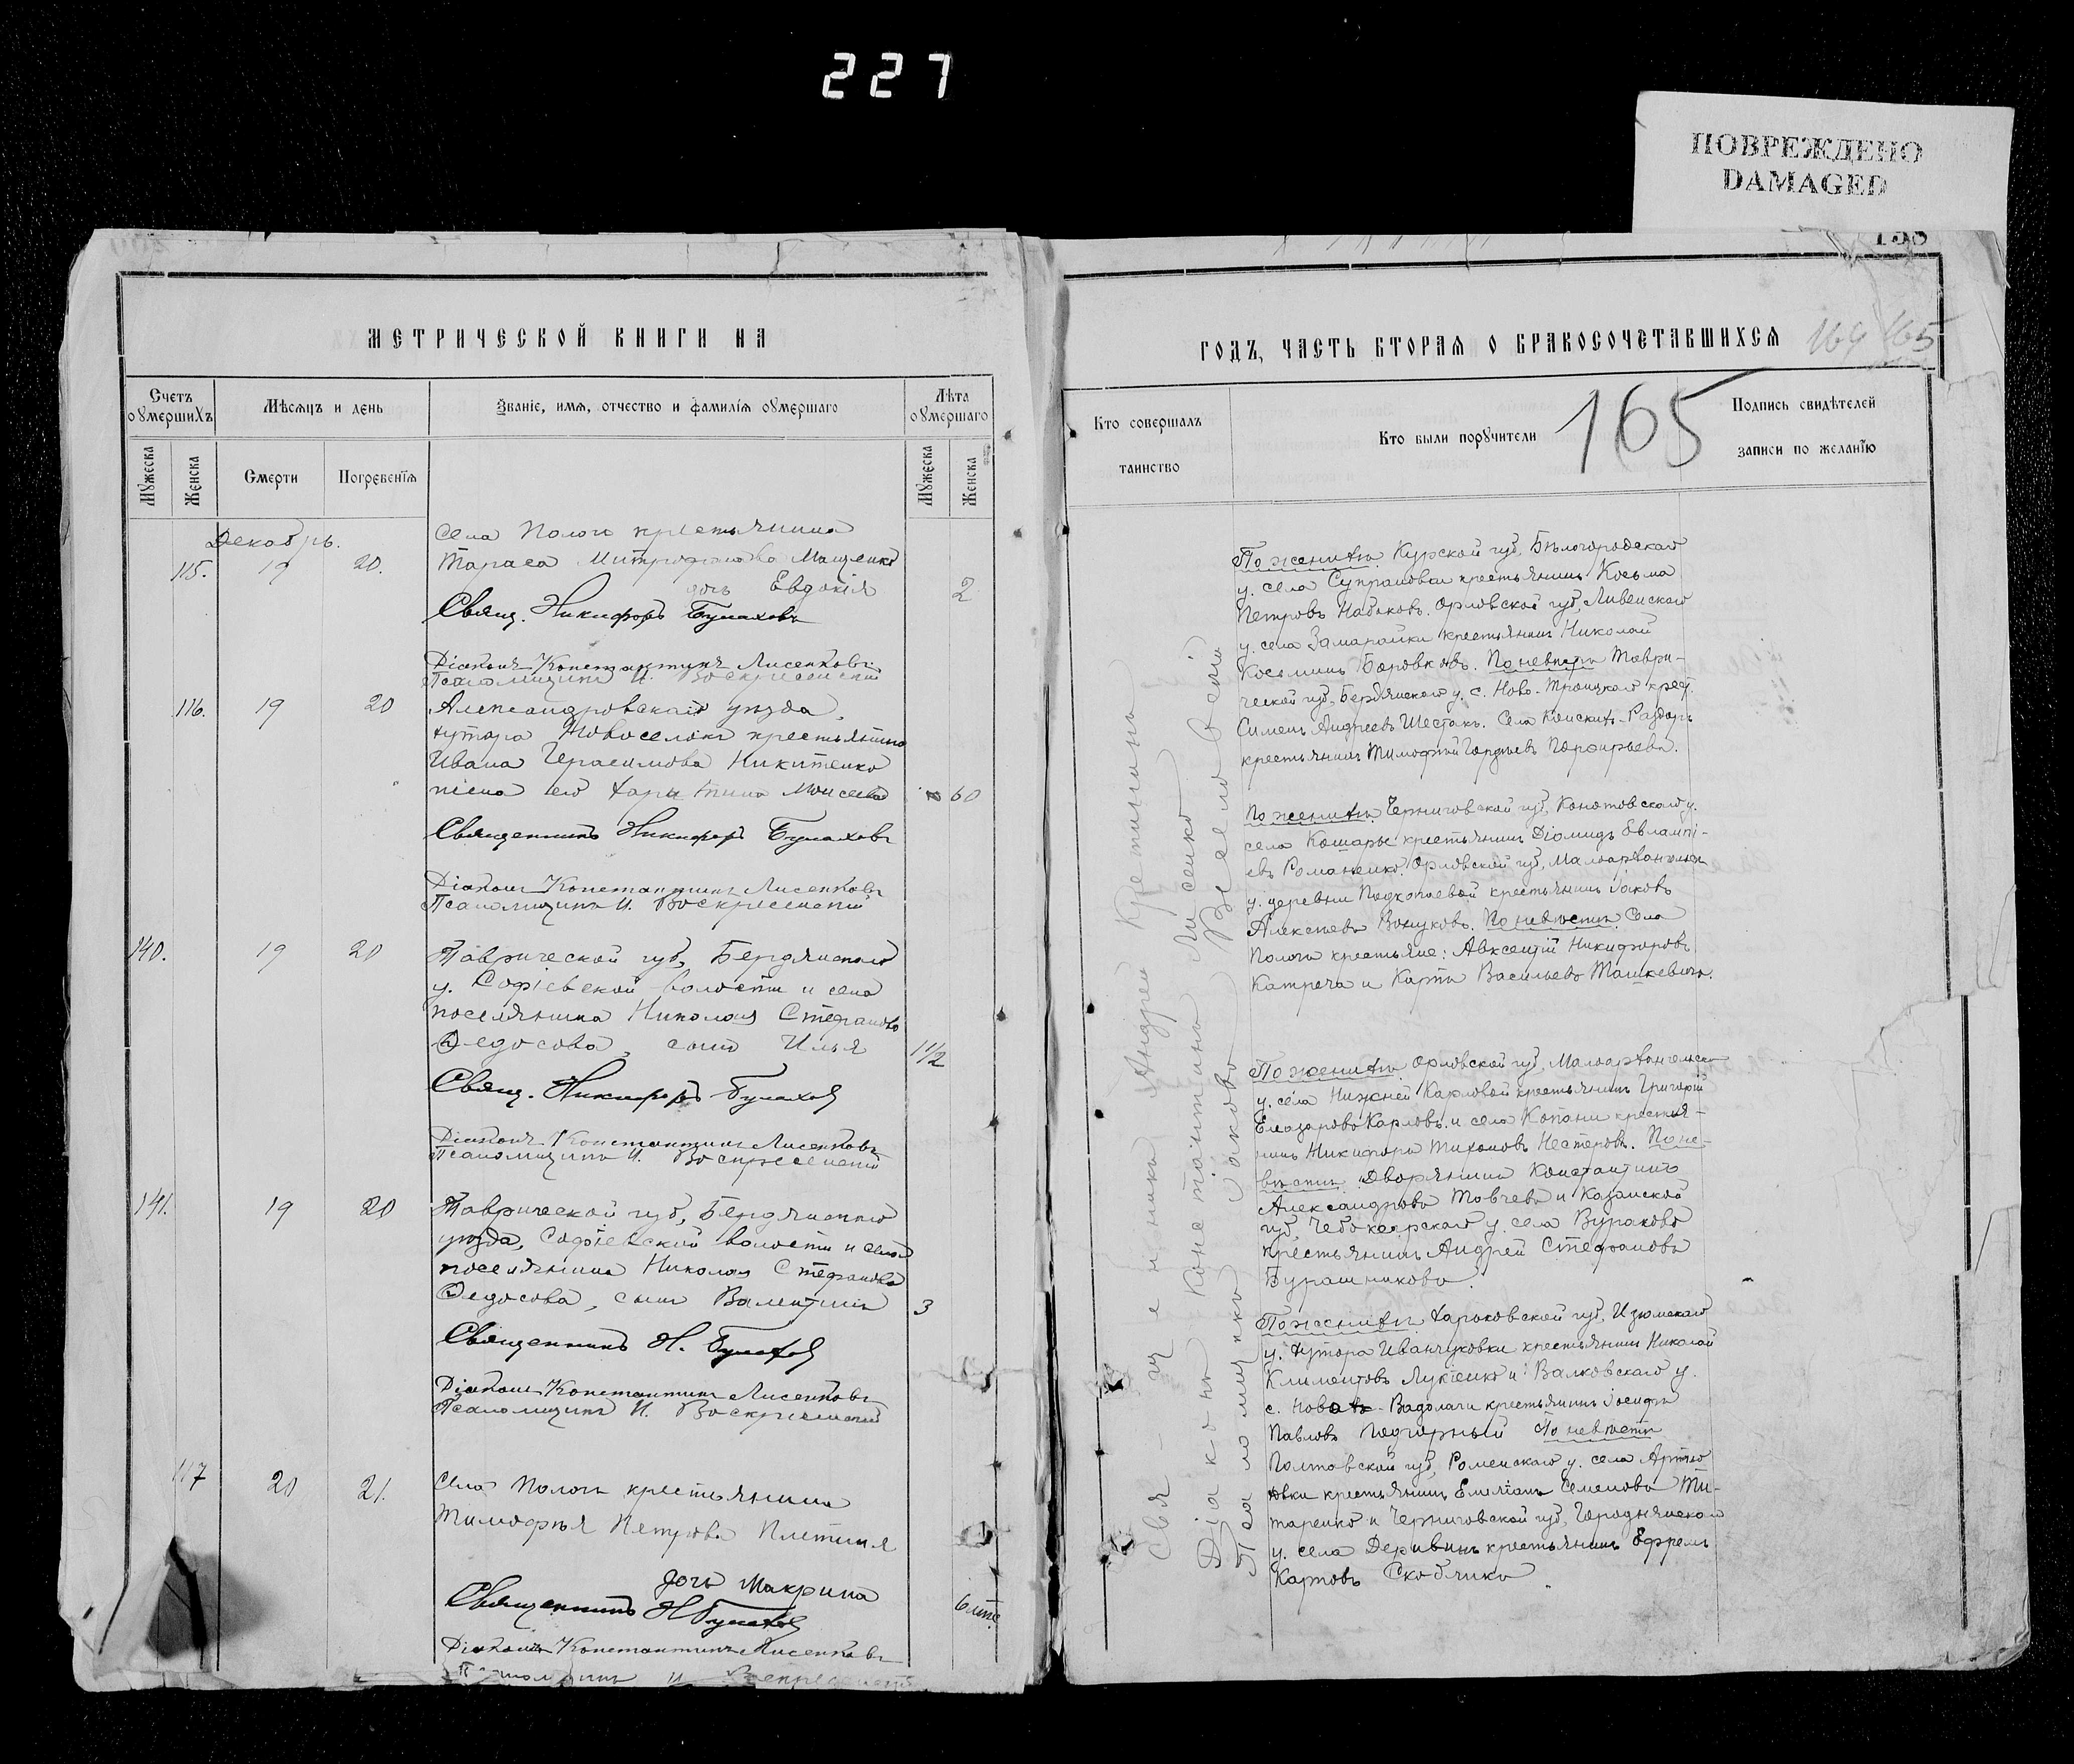 227
ПОВРЕЖДЕНО
DAMAGED
МЕТРИЧЕСКОЙ КНИГИ НА
Счетъ оумершихъ
Мѣсяцъ и день
Званіе, имя, отчество и фамилія оумершаго
Лѣта оумершаго
Мужеска
Женска
Смерти
Погребенія
Мужеска
Женска
Декабрь.
Села Пологи крестьянина
115. 19 20. Тараса Митрофанова Мащенко
дочь Евдокія 2
Свящ. Никифоръ Булаховъ
Діаконъ Константинъ Лисенковъ
Псаломщикъ И. Воскресенскій
116. 19 20 Александровскаго уѣзда,
хутора Новоселки крестьянина
Ивана Герасимова Никитенко
жена его Харитина Моисеева 60
Священникъ Никифоръ Булаховъ
Діаконъ Константинъ Лисенковъ
Псаломщикъ И. Воскресенскій
140. 19 20 Таврической губ, Бердянскаго
у. Софіевской волости и села
поселянина Николая Стефанова
Ѳедосова, сынъ Илья 1 1/2
Свящ. Никифоръ Булаховъ
Діаконъ Константинъ Лисенковъ
Псаломщикъ И. Воскресенскій
141. 19 20 Таврической губ, Бердянскаго
уѣзда, Софіевской волости и села
поселянина Николая Стефанова
Ѳедосова, сынъ Валентинъ 3
Священникъ Н. Булаховъ
Діаконъ Константинъ Лисенковъ
Псаломщикъ И. Воскресенскій
117 20 21. Села Пологи крестьянина
Тимофѣя Петрова Плетиня
дочь Макрина
Священникъ Н Булаховъ 6
Діаконъ Константинъ Лисенковъ
Псаломщикъ И. Воскресенскій
ГОДЪ, ЧАСТЬ ВТОРАЯ О БРАКОСОЧЕТАВШИХСЯ
164 165
Кто совершалъ таинство
Кто были поручители
165
Подпись свидѣтелей записи по желанію
Священникъ Андрей
Діаконъ Константинъ Лисенко
Псаломщикъ Іаковъ
По женихѣ Курской губ, Бѣлогородскаго
у. села крестьянинъ Косьма
Петровъ Набоковъ. Орловской губ, Ливенскаго
у. села Замарайки крестьянинъ Николай
Косьминъ Боровковъ. По невѣстѣ Таври-
ческой губ, Бердянскаго у. с. Ново-Троицкаго крест.
Сименъ Андреевъ Шестакъ. Села Конскихъ-Раздоръ
крестьянинъ Тимофей Гордѣевъ Порфирьевъ.
По женихѣ Черниговской губ, Конотовскаго у.
села Кошары крестьянинъ Діомидъ Евлампі-
евъ Романенко. Орловской губ, Малоархангельск
у. деревни Подкопаевой крестьянинъ Іаковъ
Алексѣевъ По невѣстѣ Села
Пологи крестьяне: Авксентій Никифоровъ
Катреча и Карпъ Васильевъ Ташкевичъ.
По женихѣ Орловской губ, Малоархангельск
у. села Нижней Карловой крестьянинъ Григорій
Елазаровъ Карловъ и села Копани крестья-
нинъ Никифоръ Тихоновъ Нестеровъ. По не-
вѣстѣ Дворянинъ Константинъ
Александровъ Товчевъ и Казанской
губ, Чебоксарскаго у. села Бураково
крестьянинъ Андрей Стефановъ
Бурашниковъ.
По женихѣ Харьковской губ, Изюмскаго
у. хутора Иванчуковки крестьянинъ Николай
Климентовъ Лукіенко и Валковскаго у.
с. Водолаги крестьянинъ Іосифъ
Павловъ Подгорный По невѣстѣ
Полтовской губ, Роменскаго у. села Артю
ховки крестьянинъ Емеліанъ Семеновъ Ти-
таренко и Черниговской губ, Городнянскаго
у. села крестьянинъ Ефремъ
Карповъ Скобчико